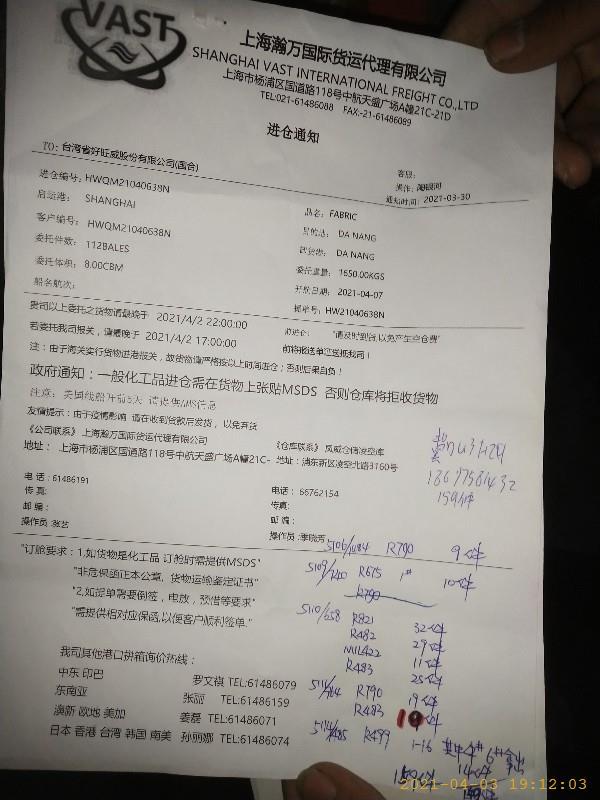 VAST
上海瀚万国际货运代理有限公司
SHANGHAI VAST INTERNATIONAL FREIGHT CO.,LTD
上海市杨浦区国道路118号中航天盛广场A幢21C-21D
TEL:021-61486088 FAX:-21-61486089
进仓通知
TO: 台湾省好旺威股份有限公司(国合)
客服:
操作:
进仓编号: HWQM21040638N
通知时间: 2021-03-30
启运港: SHANGHAI
品名: FABRIC
客户编号: HWQM21040638N
目的港: DA NANG
委托件数: 112BALES
卸货港: DA NANG
委托体积: 8.00CBM
委托重量: 1650.00KGS
船名航次:
开航日期: 2021-04-07
提单号: HW21040638N
贵司以上委托之货物请最晚于 2021/4/2 22:00:00
前进仓: "请及时到货,以免产生空仓费"
若委托我司报关,请最晚于 2021/4/2 17:00:00
前将报送单证送抵我司!
注:由于海关实行货物进港报关,故货物请严格按以上时间进仓;否则后果自负!
政府通知:一般化工品进仓需在货物上张贴MSDS 否则仓库将拒收货物
注意:美国线船开前5天 请提供AMS信息
友情提示:由于疫情影响 请在收到货款后发货,以免弃货
《公司联系》上海瀚万国际货运代理有限公司
《仓库联系》凤威仓储凌空库
地址: 上海市杨浦区国道路118号中航天盛广场A幢21C-
地址:浦东新区凌空北路3760号
18697581432
159件
电话:61486191
电话: 66762154
传真:
传真:
邮编:
邮编:
操作员:张艺
操作员:季晓芳
5106/1484 R790 9件
"订舱要求:1,如货物是化工品 订舱时需提供MSDS"
5109/740 R675 1# 10件
"非危保函正本公章, 货物运输鉴定证书"
R790
"2,如提单需要倒签,电放,预借等要求"
5110/658 R821 32件
"需提供相对应保函,以便客户顺利签单."
R482 29件
MIL422 11件
R483 25件
我司其他港口拼箱询价热线:
中东 印巴 罗文祺 TEL:61486079
R790 19件
东南亚 张丽 TEL:61486159
R483
澳新 欧地 美加 姜磊 TEL:61486071
R499 1-16
日本 香港 台湾 韩国 南美 孙丽娜 TEL:61486074
2021-04-03 19:12:03